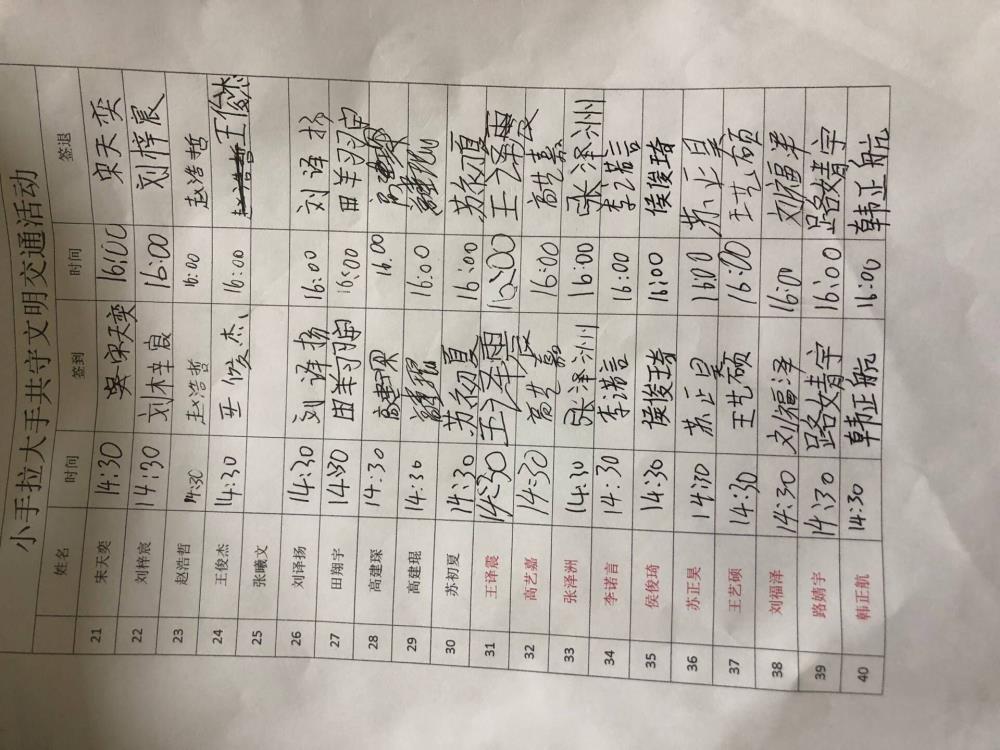 小手拉大手共守文明交通活动
姓名 时间 签到 时间 签退
21 宋天奕 14:30 宋天奕 16:00 宋天奕
22 刘梓宸 14:30 刘梓宸 16:00 刘梓宸
23 赵浩哲 14:30 赵浩哲 16:00 赵浩哲
24 王俊杰 14:30 王俊杰 16:00 赵浩哲 王俊杰
25 张曦文
26 刘译扬 14:30 刘译扬 16:00 刘译扬
27 田翔宇 14:30 田翔宇 16:00 田翔宇
28 高建琛 14:30 16:00
29 高建琨 14:30 16:00
30 苏初夏 14:30 苏初夏 16:00 苏初夏
31 王译震 14:30 王泽震 16:00 王泽震
32 高艺嘉 14:30 高艺嘉 16:00 高艺嘉
33 张泽洲 14:30 张泽洲 16:00 张泽洲
34 李诺言 14:30 李诺言 16:00 李诺言
35 侯俊琦 14:30 侯俊琦 16:00 侯俊琦
36 苏正昊 14:30 苏正昊 16:00 苏正昊
37 王艺硕 14:30 王艺硕 16:00 王艺硕
38 刘福泽 14:30 刘福泽 16:00 刘福泽
39 路婧宇 14:30 路婧宇 16:00 路婧宇
40 韩正航 14:30 韩正航 16:00 韩正航